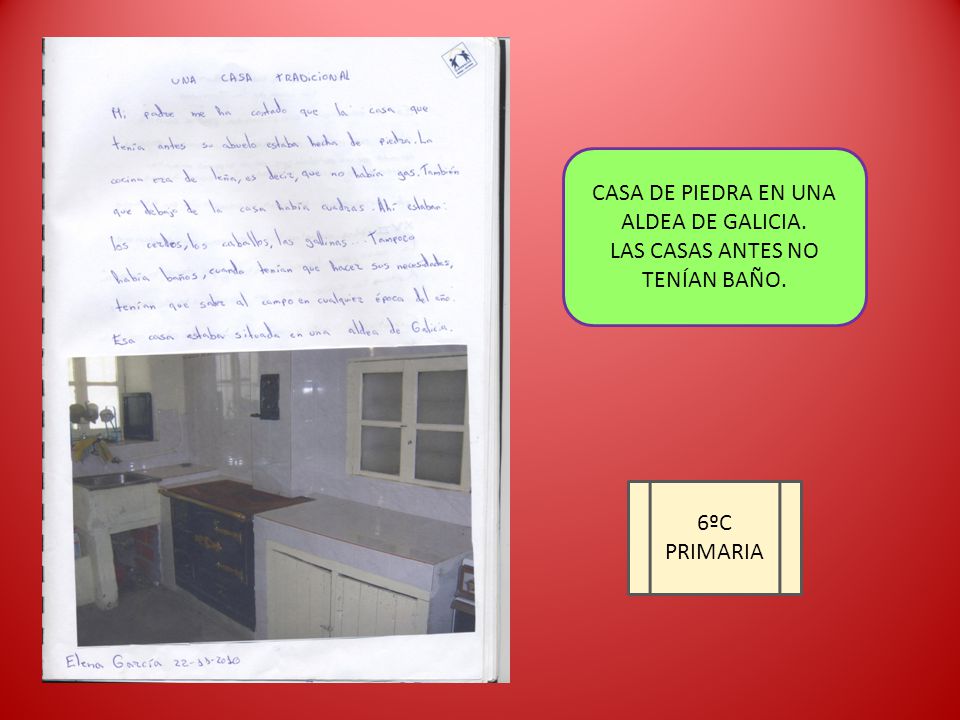 UNA CASA TRADICIONAL
Mi padre me ha contado que la casa que
tenía antes su abuelo estaba hecha de piedra. La
cocina era de leña, es decir, que no había gas. También
que debajo de la casa había cuadras. Ahí estaban:
los cerdos, los caballos, las gallinas... Tampoco
había baños, cuando tenían que hacer sus necesidades,
tenían que salir al campo en cualquier época del año.
Esa casa estaba situada en una aldea de Galicia.
Elena García 22-11-2010
CASA DE PIEDRA EN UNA
ALDEA DE GALICIA.
LAS CASAS ANTES NO
TENÍAN BAÑO.
6ºC
PRIMARIA